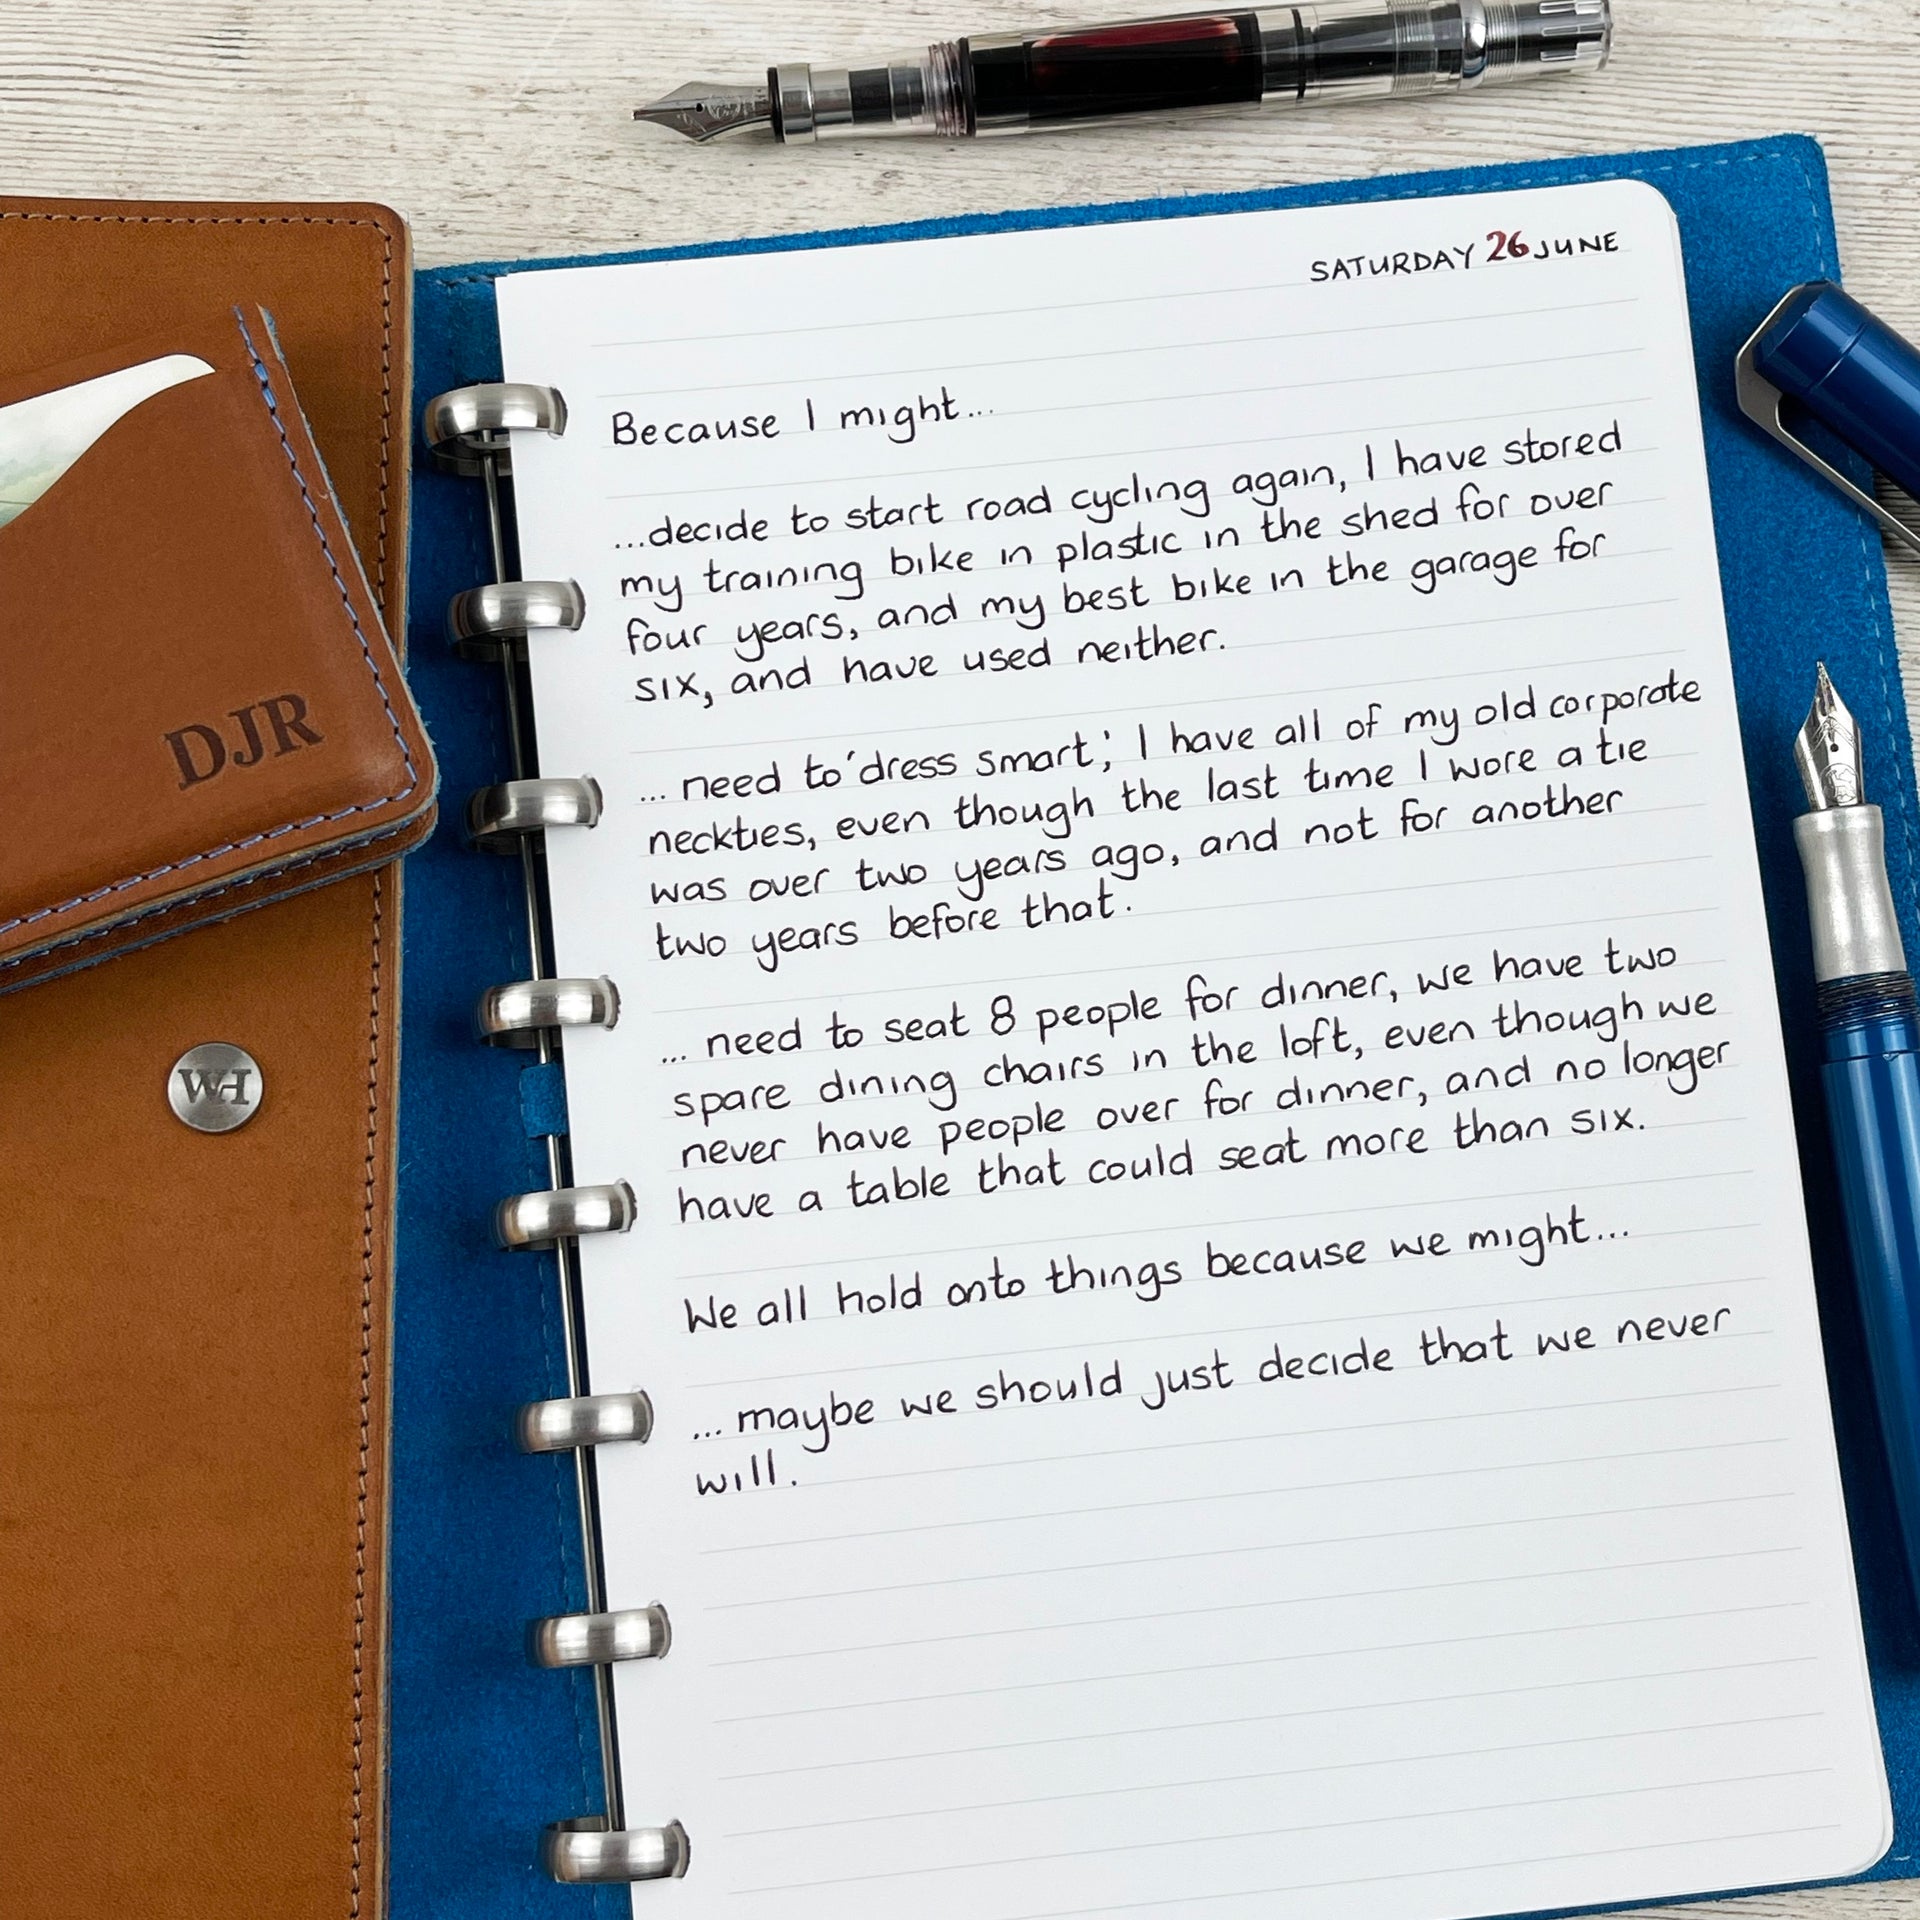 SATURDAY 26 JUNE
Because I might...
...decide to start road cycling again, I have stored
my training bike in plastic in the shed for over
four years, and my best bike in the garage for
six, and have used neither.
... need to 'dress smart', I have all of my old corporate
neckties, even though the last time I wore a tie
was over two years ago, and not for another
two years before that.
... need to seat 8 people for dinner, we have two
spare dining chairs in the loft, even though we
never have people over for dinner, and no longer
have a table that could seat more than six.
We all hold onto things because we might...
... maybe we should just decide that we never
will.
DJR
WH